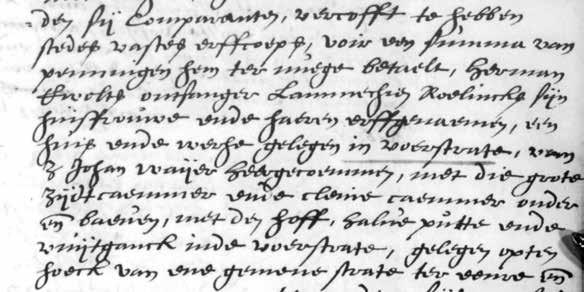 den sij Comparanten, vercofft te hebben
stedes vastes erffcoeps, voir een summa van
penningen hem ter nuege betaelt, Herman
ontfanger Lammechien Roelincks sijn
huisfrouwe ende haeren erffgenaemen, een
huis ende werhe gelegen in voerstrate, van
Z Johan waijer heergecoemmen, met die grote
zijdtcaemmer ende cleine caemmer onder
en baeven, met den hoff, halve putte ende
vuijtganck inde voerstrate, gelegen opten
hoeck van ene gemene strate ter eenre en